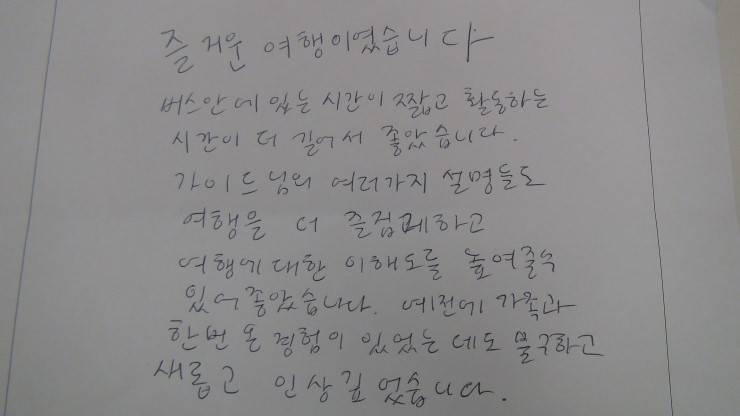 즐거운 여행이였습니다
버스안에 있는 시간이 짧고 활동하는
시간이 더 길어서 좋았습니다.
가이드님의 여러가지 설명들도
여행을 더 즐겁께하고
여행에 대한 이해도를 높여줄수
있어좋았습니다. 예전에 가족과
한번 온 경험이 있었는데도 불구하고
새롭고 인상깊었습니다.